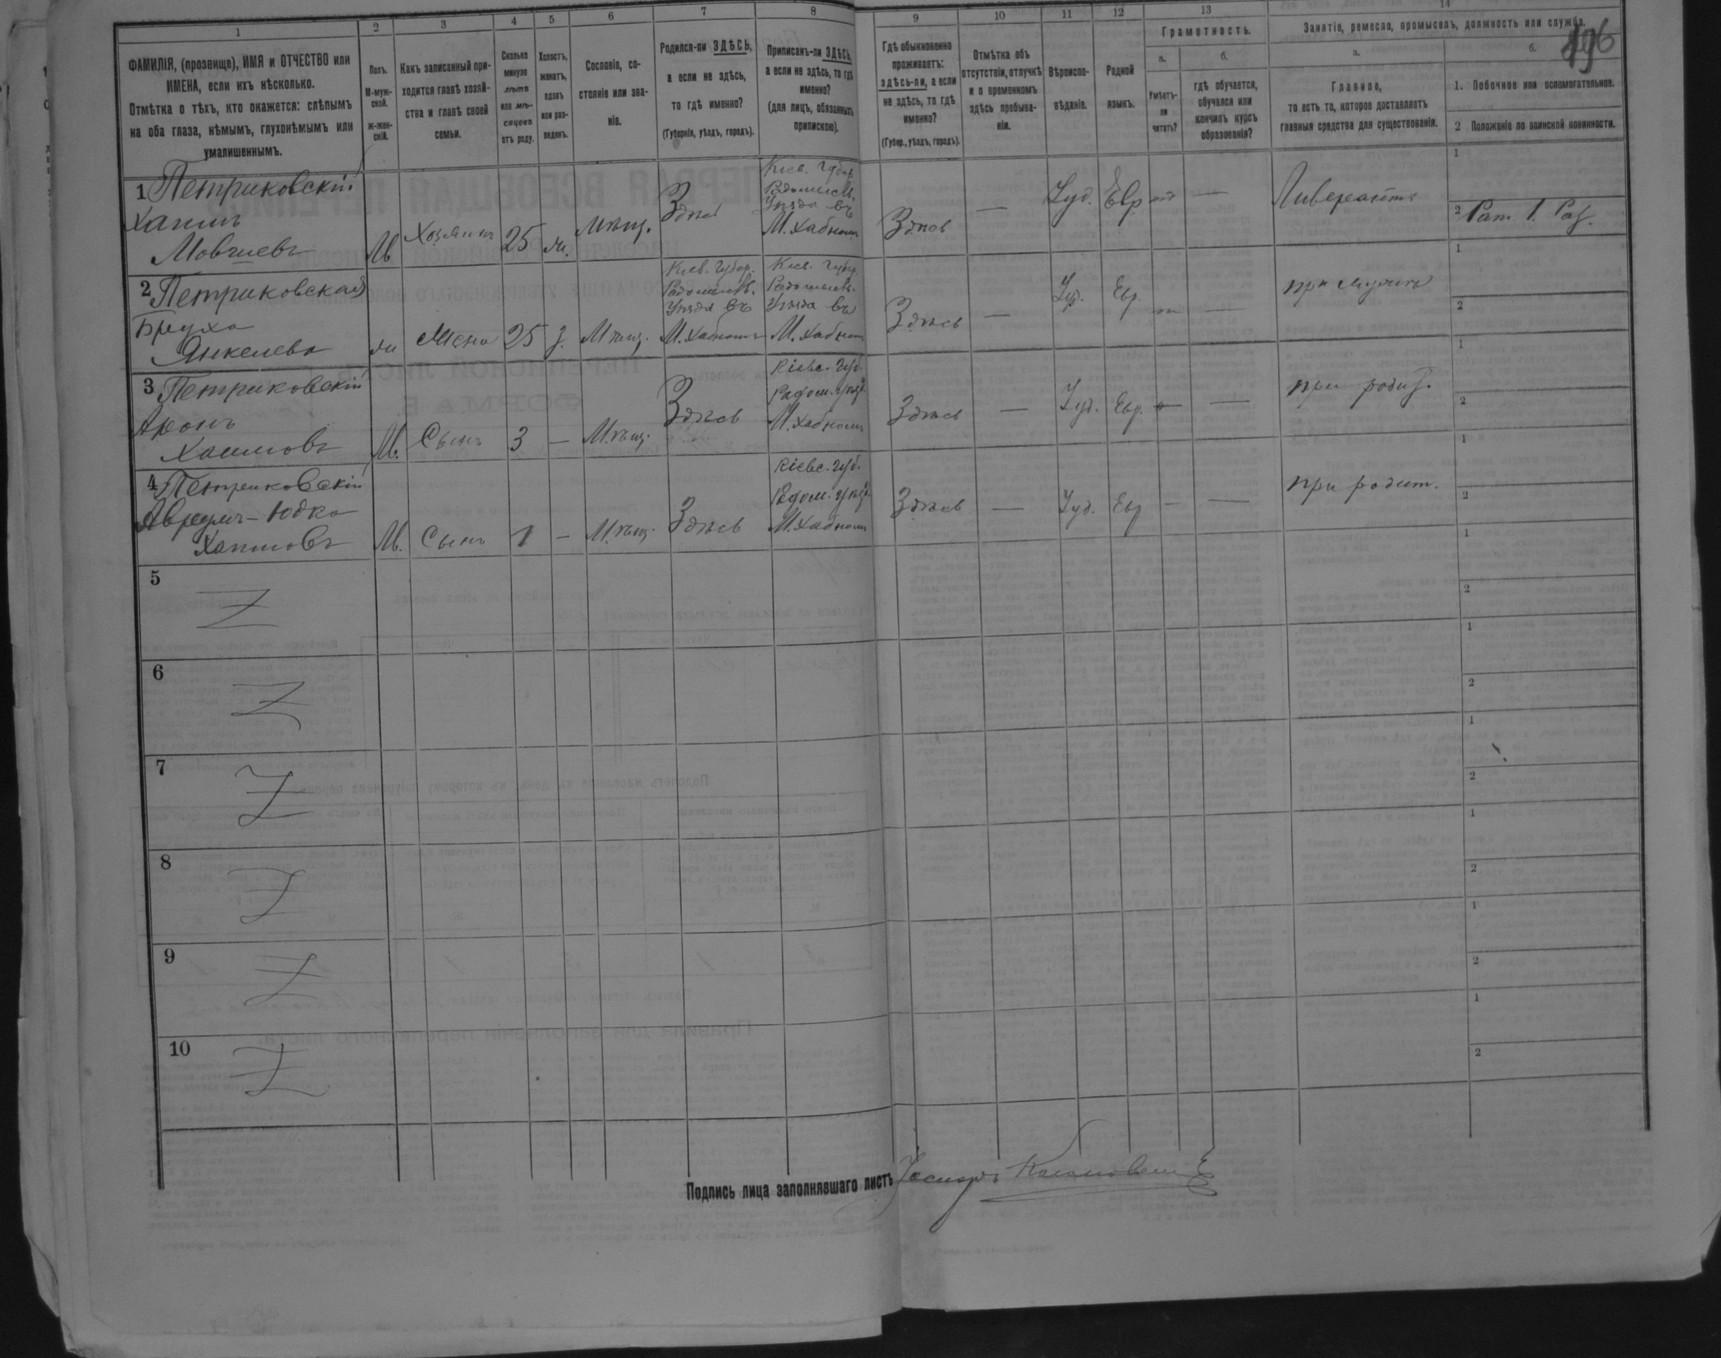 1
2
3
4
5
6
7
8
9
10
11
12
13
14
ФАМИЛІЯ, (прозвище), ИМЯ и ОТЧЕСТВО или
ИМЕНА, если ихъ нѣсколько.
Отмѣтка о тѣхъ, кто окажется: слѣпымъ
на оба глаза, нѣмымъ, глухонѣмымъ или
умалишеннымъ.
Полъ.
М-муж-
ской.
ж-жен-
скій.
Какъ записанный при-
ходится главѣ хозяй-
ства и главѣ своей
семьи.
Сколько
минуло
лѣтъ
или мѣ-
сяцевъ
отъ роду.
Холостъ,
женатъ,
вдовъ
или раз-
веденъ.
Сословіе, со-
стояніе или зва-
ніе.
Родился-ли ЗДѢСЬ,
а если не здѣсь,
то гдѣ именно?
(Губернія, уѣздъ, городъ).
Приписанъ-ли ЗДѢСЬ,
а если не здѣсь, то гдѣ
именно?
(для лицъ, обязанныхъ
припискою).
Гдѣ обыкновенно
проживаетъ:
здѣсь-ли, а если
не здѣсь, то гдѣ
именно?
(Губер., уѣздъ, городъ).
Отмѣтка объ
отсутствіи, отлучкѣ
и о временномъ
здѣсь пребыва-
ніи.
Вѣроиспо-
вѣданіе.
Родной
языкъ.
Грамотность.
а.
Умѣетъ-
ли
читать?
б.
гдѣ обучается,
обучался или
кончилъ курсъ
образованія?
Занятіе, ремесло, промыселъ, должность или служба.
а.
Главное,
то есть то, которое доставляетъ
главныя средства для существованія.
б.
1. Побочное или вспомогательное.
2 Положеніе по воинской повинности.
196
1 Петриковскій
Хаимъ
Мовшевъ
М
Хозяинъ
25
ж.
Мѣщ.
Здѣсь
Кіев. Губер.
Радомысл.
Уѣзда въ
М. Хабномъ
Здѣсь
—
Іуд.
Евр
—
1
2 Рат. 1. Раз.
2 Петриковская
Бруха
Янкелева
ж
Жена
25
з.
Мѣщ.
Кіев. Губер.
Радомысл.
Уѣзда въ
М. Хабномъ
Кіев. Губер.
Радомысл.
Уѣзда въ
М. Хабномъ
Здѣсь
—
Іуд.
Евр.
—
при мужѣ
1
2
3 Петриковскій
Аронъ
Хаимовъ
М.
Сынъ
3
—
Мѣщ.
Здѣсь
Кіевс. Губ.
Радом. уѣз.
М. Хабномъ
Здѣсь
—
Іуд.
Евр.
—
при родит.
1
2
4 Петриковскій
Аврумъ-Юдко
Хаимовъ
М.
Сынъ
1
—
Мѣщ.
Здѣсь
Кіевс. Губ.
Радом. уѣз.
М. Хабномъ
Здѣсь
—
Іуд.
Евр
—
—
при родит.
1
2
5
1
2
6
1
2
7
1
2
8
1
2
9
1
2
10
1
2
Подпись лица заполнявшаго листъ